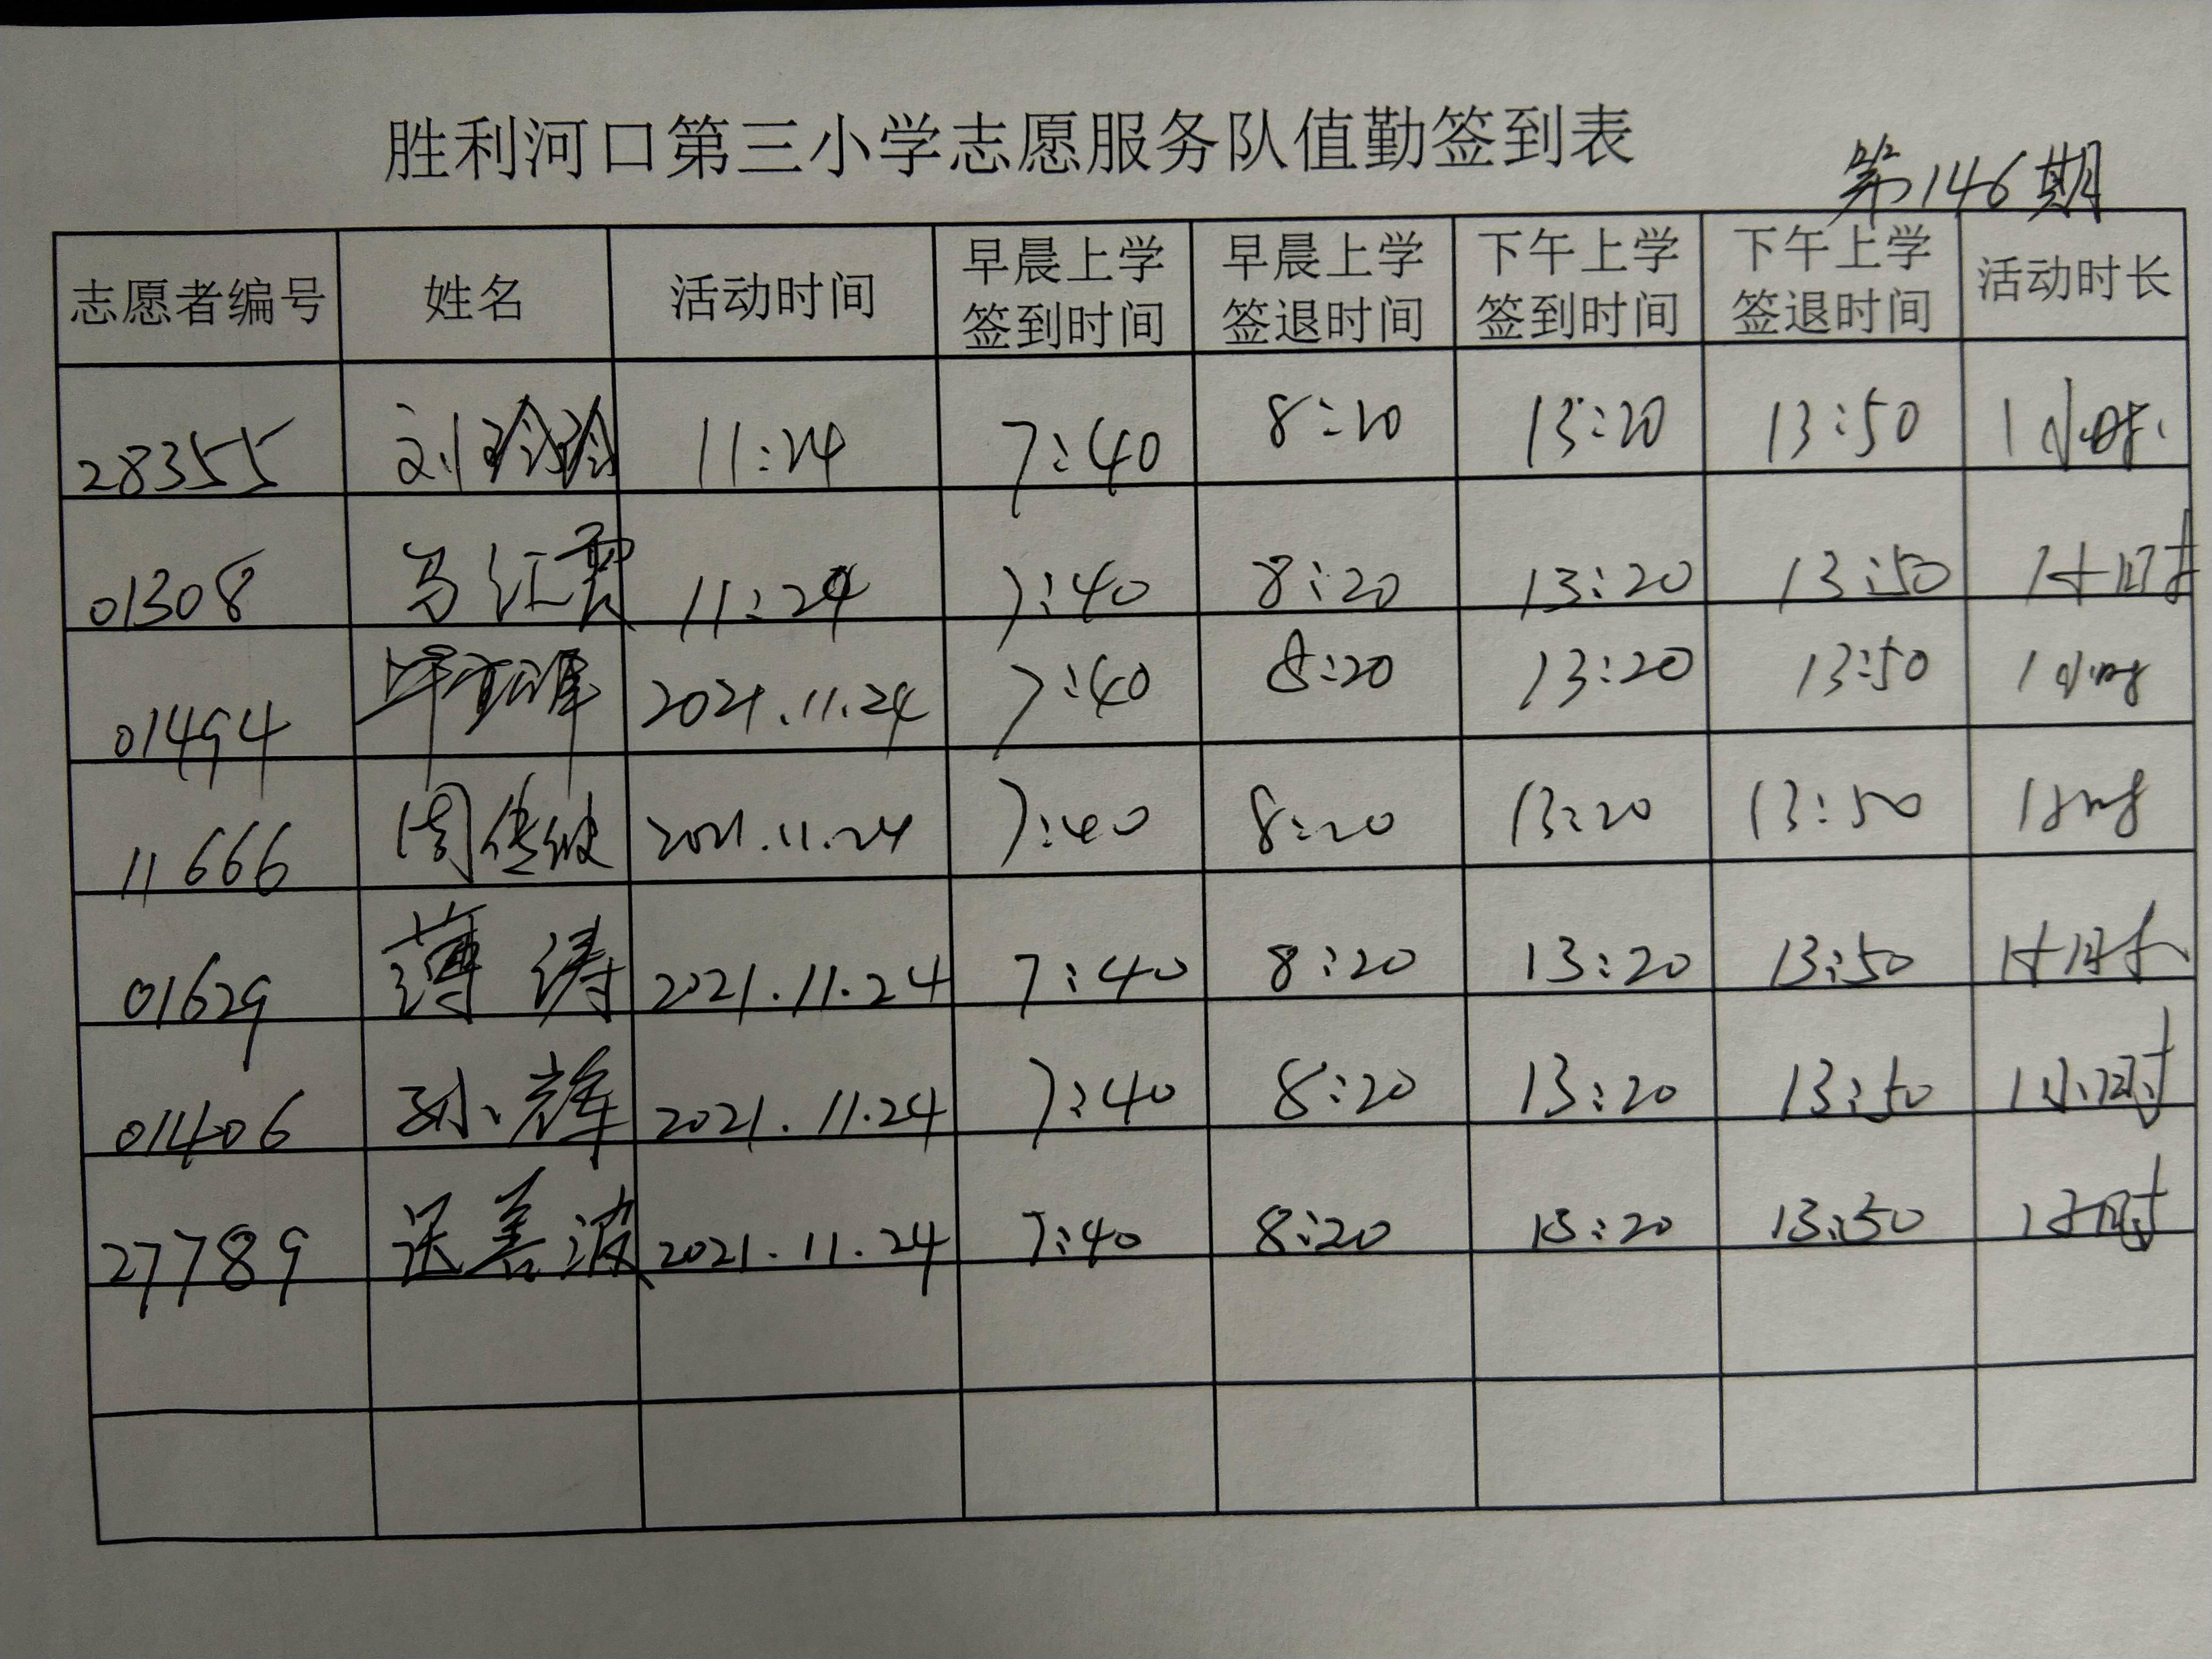 胜利河口第三小学志愿服务队值勤签到表
第146期
志愿者编号 姓名 活动时间 早晨上学签到时间 早晨上学签退时间 下午上学签到时间 下午上学签退时间 活动时长
28355 刘玲玲 11:24 7:40 8:20 13:20 13:50 1小时
01308 马江霞 11:24 7:40 8:20 13:20 13:50 1小时
01494 2021.11.24 7:40 8:20 13:20 13:50 1小时
11666 周传波 2021.11.24 7:40 8:20 13:20 13:50 1小时
01629 薄涛 2021.11.24 7:40 8:20 13:20 13:50 1小时
01406 孙辉 2021.11.24 7:40 8:20 13:20 13:50 1小时
27789 张善波 2021.11.24 7:40 8:20 13:20 13:50 1小时